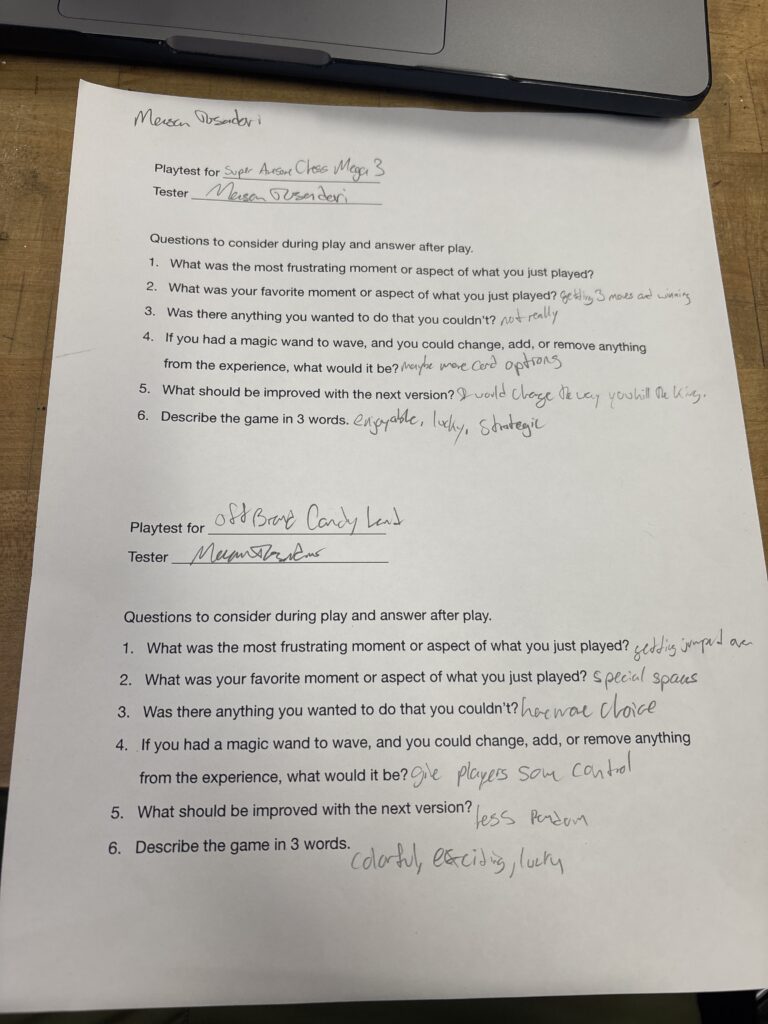 Playtest for Super Awesome Chess Mega 3
Tester
Questions to consider during play and answer after play.
1. What was the most frustrating moment or aspect of what you just played?
2. What was your favorite moment or aspect of what you just played? getting 3 moves and winning
3. Was there anything you wanted to do that you couldn't? not really
4. If you had a magic wand to wave, and you could change, add, or remove anything
from the experience, what would it be? maybe more card options
5. What should be improved with the next version? I would change the way you kill the king.
6. Describe the game in 3 words. enjoyable, lucky, strategic
Playtest for Off Brand Candy Land
Tester
Questions to consider during play and answer after play.
1. What was the most frustrating moment or aspect of what you just played? getting jumped over
2. What was your favorite moment or aspect of what you just played? special spaces
3. Was there anything you wanted to do that you couldn't? have more choice
4. If you had a magic wand to wave, and you could change, add, or remove anything
from the experience, what would it be? give players some control
5. What should be improved with the next version? less random
6. Describe the game in 3 words. colorful, exciting, lucky